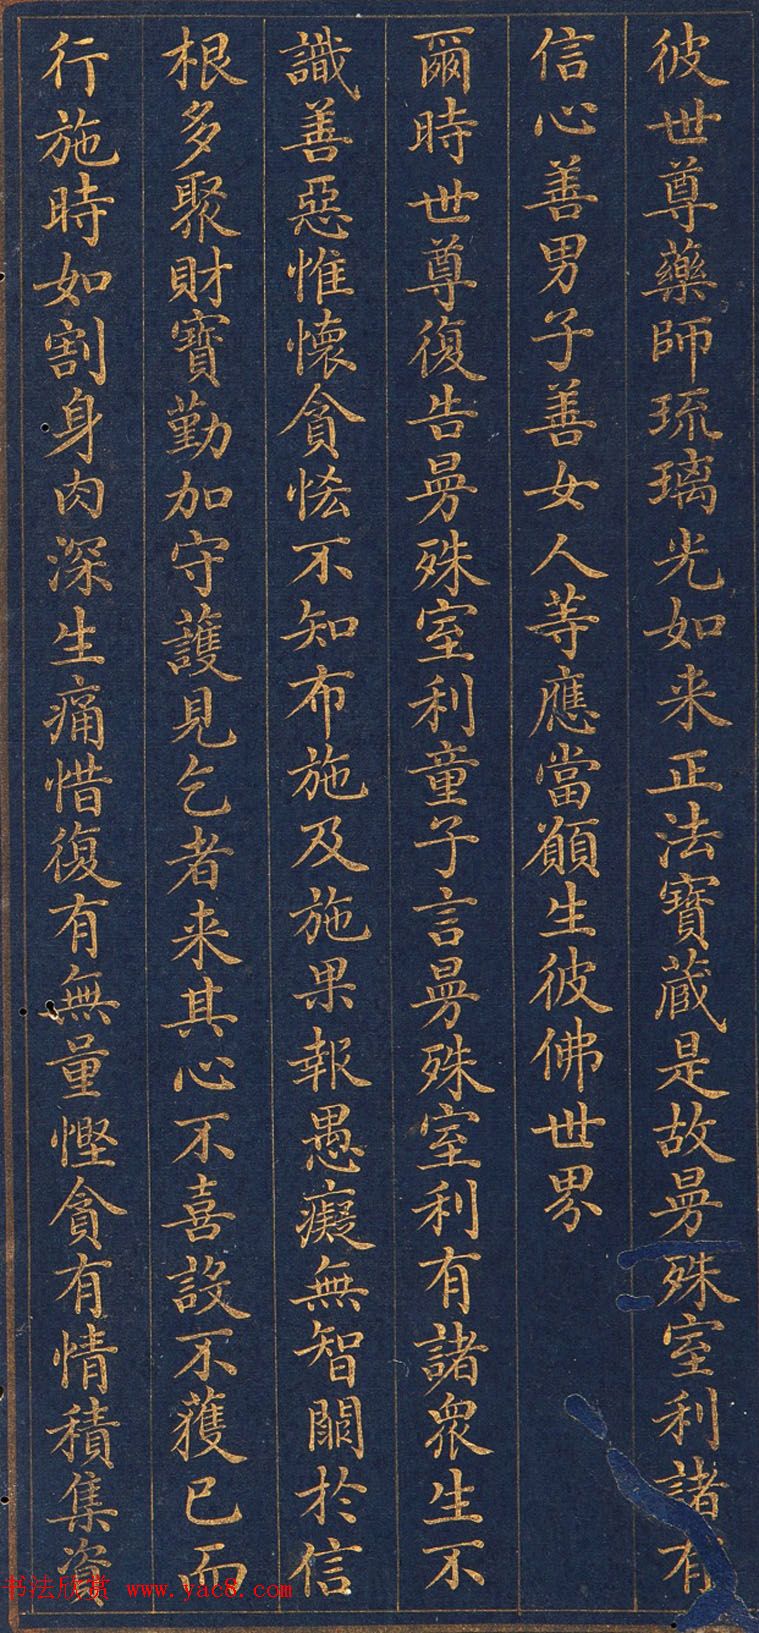 彼世尊藥師琉璃光如来正法寶蔵是故曼殊室利諸有
信心善男子善女人等應當願生彼佛世界
爾時世尊復告曼殊室利童子言曼殊室利有諸衆生不
識善惡惟懷貪恡不知布施及施果報愚癡無智闕於信
根多聚財寶勤加守護見乞者来其心不喜設不獲已而
行施時如割身肉深生痛惜復有無量慳貪有情積集資
书法欣赏 www.yac8.com